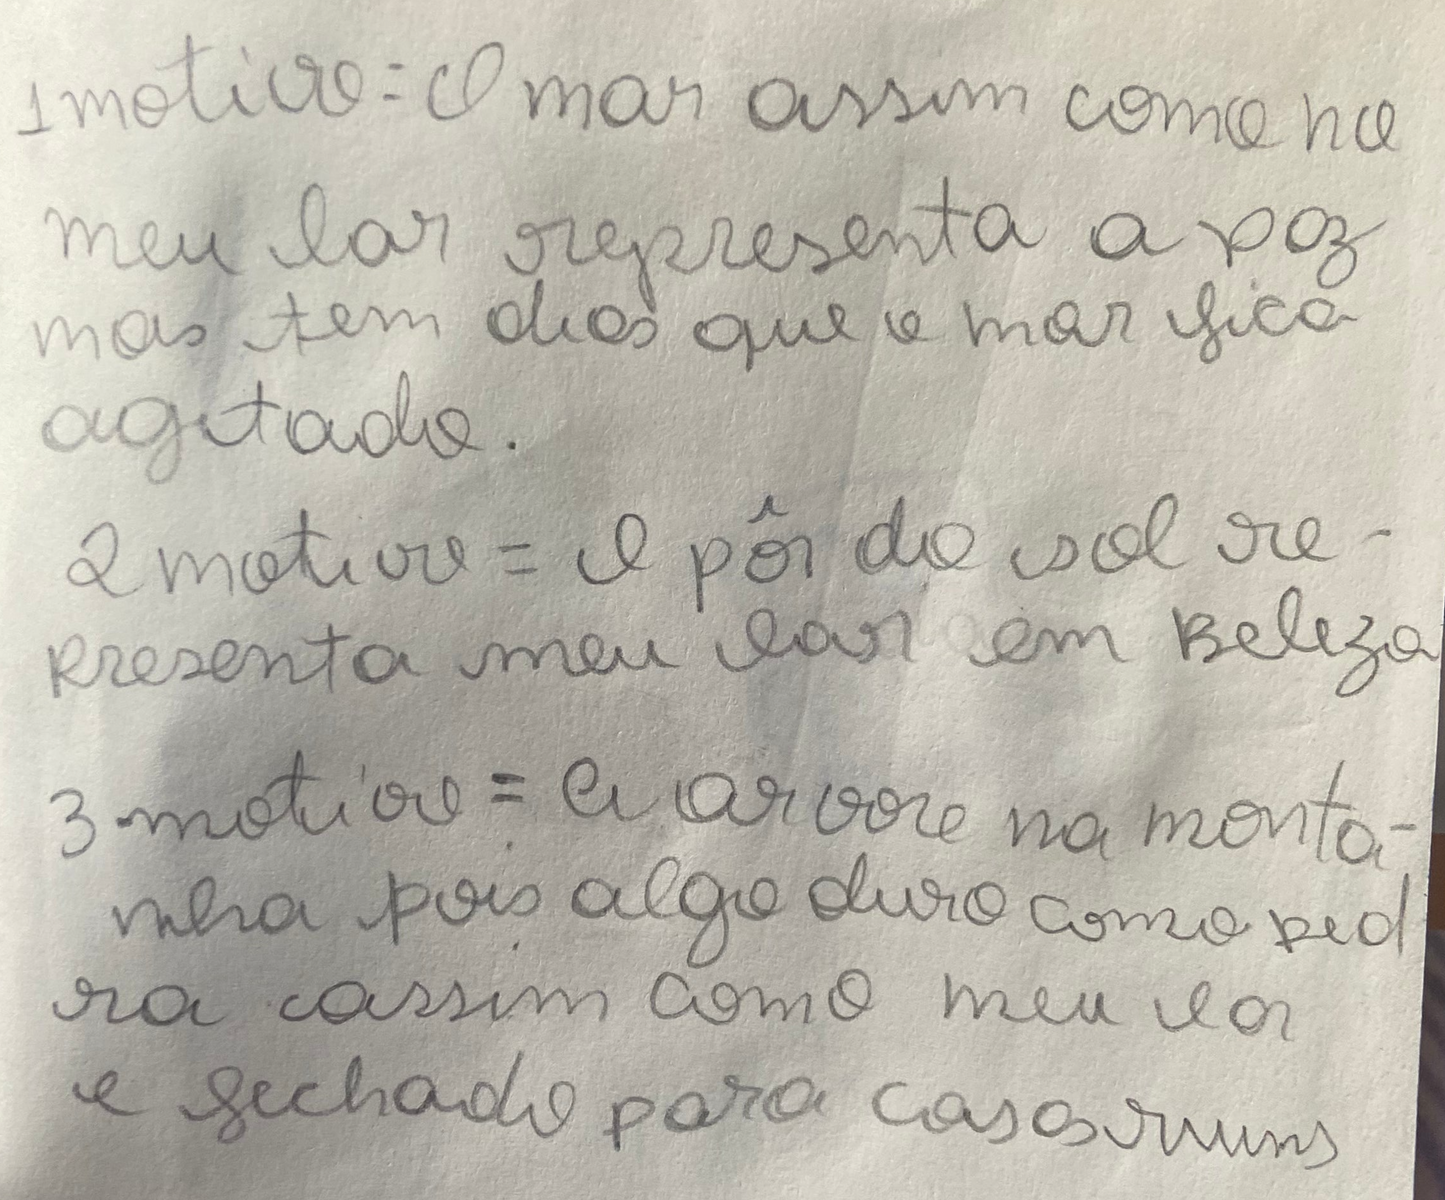 1 motivo = O mar assim como no
meu lar representa a paz
mas tem dias que o mar fica
agitado.
2 motivo = O pôr do sol re-
presenta meu lar em Beleza
3 motivo = A arvore na monta-
nha pois algo duro como ped
ra assim como meu lar
e fechado para casas ruins